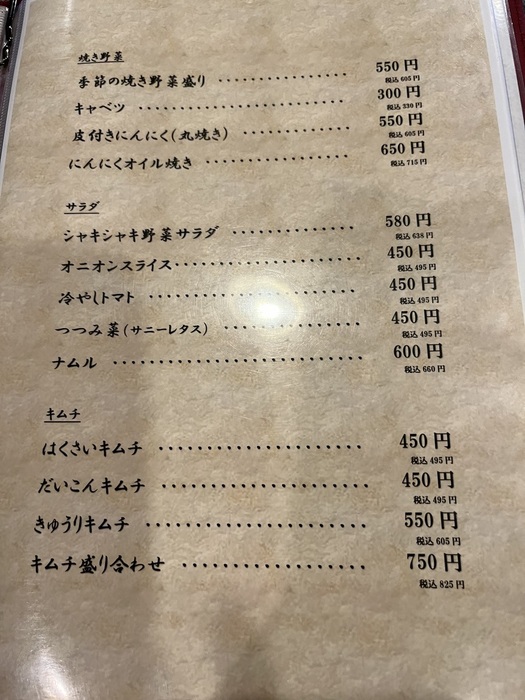 焼き野菜
季節の焼き野菜盛り ・・・・・・・・・・・・・・・ 550円
税込605円
キャベツ ・・・・・・・・・・・・・・・・・・・・・・・ 300円
税込330円
皮付きにんにく(丸焼き) ・・・・・・・・・・・・ 550円
税込605円
にんにくオイル焼き ・・・・・・・・・・・・・・・・ 650円
税込715円
サラダ
シャキシャキ野菜サラダ ・・・・・・・・・・・・・ 580円
税込638円
オニオンスライス・・・・・・・・・・・・・・・・・・・ 450円
税込495円
冷やしトマト ・・・・・・・・・・・・・・・・・・・・・ 450円
税込495円
つつみ菜(サニーレタス) ・・・・・・・・・・・・・ 450円
税込495円
ナムル ・・・・・・・・・・・・・・・・・・・・・・・・・ 600円
税込660円
キムチ
はくさいキムチ ・・・・・・・・・・・・・・・・・・・ 450円
税込495円
だいこんキムチ ・・・・・・・・・・・・・・・・・・・ 450円
税込495円
きゅうりキムチ ・・・・・・・・・・・・・・・・・・・ 550円
税込605円
キムチ盛り合わせ ・・・・・・・・・・・・・・・・ 750円
税込825円